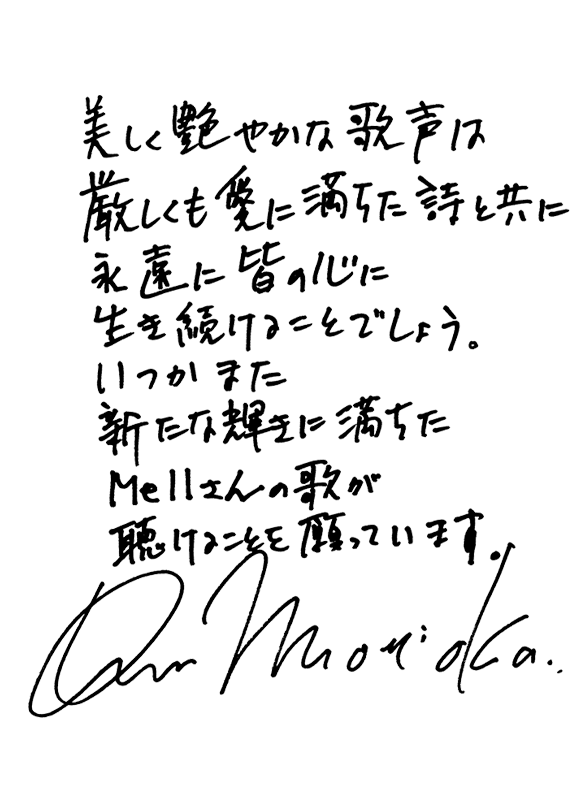 美しく艶やかな歌声は
厳しくも愛に満ちた詩と共に
永遠に皆の心に
生き続けることでしょう。
いつかまた
新たな輝きに満ちた
Mellさんの歌が
聴けることを願っています。
Morioka.